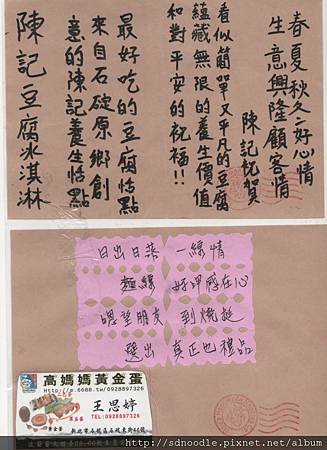 春夏秋冬好心情
生意興隆顧客情
陳記祝賀
看似簡單又平凡的豆腐
蘊藏無限的養生價值
和對平安的祝福!!
最好吃的豆腐恬點
來自石碇原鄉創
意的陳記養生恬點
陳記豆腐冰淇淋
日出日落 一線情
麵線 好呷藏在心
嗯望朋友 到燒挺
選出 真正也禮品
高媽媽黃金蛋
王思婷
TEL:0928897326
http://sdnoodle.pixnet.net/album